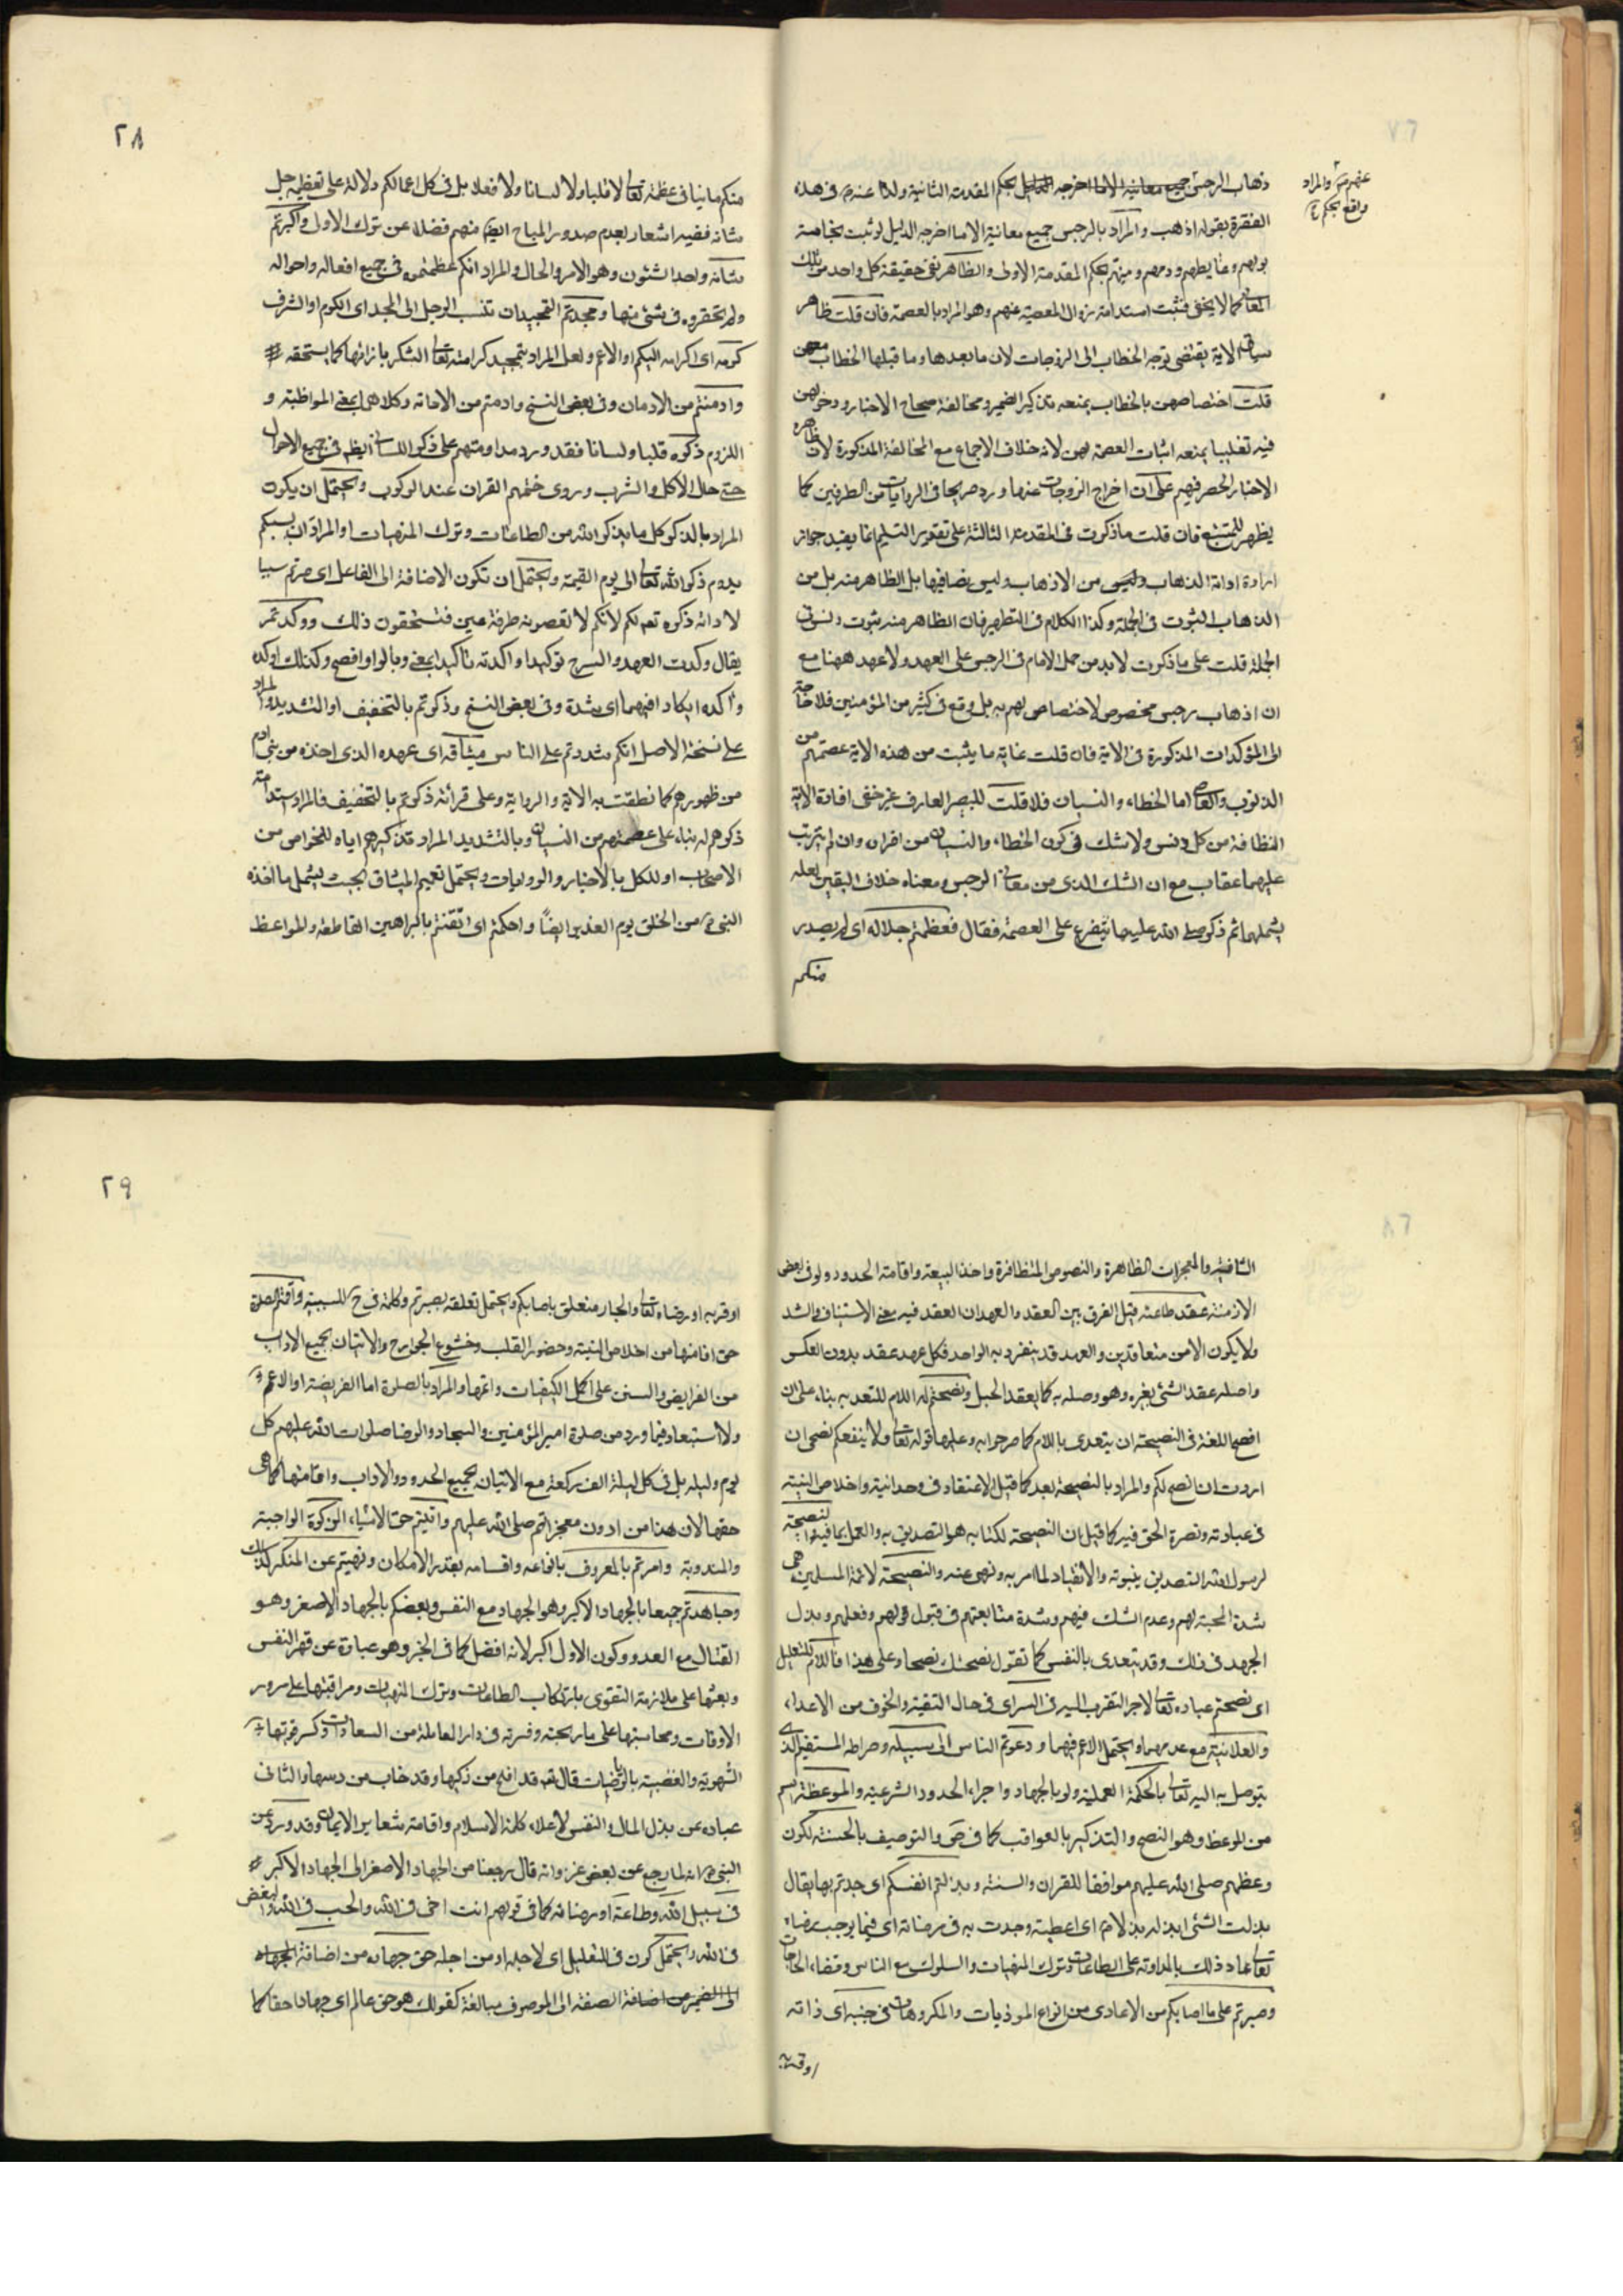 عنهم والمراد
واقع بحكم
ذهاب الرجس جميع معانيه الا ما اخرجه الدليل بحكم المقدمة الثانية ولذا عندهم في هذه
الفقرة بقوله اذهب والمراد بالرجس جميع معانيه الا ما اخرجه الدليل لو ثبت نجاسة
بولهم وغايطهم ودمهم ومنيهم بحكم المقدمة الاولى والظاهر نفي حقيقة كل واحد من تلك
المعاني كما لا يخفى فثبت استدامة زوال المعصية عنهم وهو المراد بالعصمة فان قلت ظاهر
سياق الاية يقتضي توجه الخطاب الى الزوجات لان ما بعدها وما قبلها الخطاب معهن
قلت اختصاصهن بالخطاب يمنعه تذكير الضمير ومخالفة صحاح الاخبار ودخولهن
فيه تغليبا يمنعه اثبات العصمة لهن لانه خلاف الاجماع مع المخالفة المذكورة لان ظاهر
الاخبار الحصر فيهم على ان اخراج الزوجات عنها ورد صريحا في الروايات من الطرفين كما
يظهر للمتتبع فان قلت ما ذكرت في المقدمة الثالثة على تقدير التسليم انما يفيد جواز
ارادة ادامة الذهاب وليس من الاذهاب وليس نصا فيها بل الظاهر منه بل من
الذهاب الثبوت في الجملة وكذا الكلام في التطهير فان الظاهر منه ثبوت
الجملة قلت على ما ذكرت لا بد من حمل الامام في الرجس على العهد ولا عهد ههنا مع
ان اذهاب رجس مخصوص لا اختصاص لهم به بل وقع في كثير من المؤمنين فلا حاجة
الى المؤكدات المذكورة في الاية فان قلت غاية ما يثبت من هذه الاية عصمتهم من
الذنوب والمعاصي اما الخطاء والنسيان فلا قلت للبصير العارف غير خفي افادة الاية
النظافة من كل دنس ولا شك في كون الخطاء والنسيان من افراده وان لم يترتب
عليهما عقاب مع ان الشك الذي من معاني الرجس ومعناه خلاف اليقين لعله
يشملهما ثم ذكر صلى الله عليه ما يتفرع على العصمة فقال فعظمتم جلاله اي لم يصدر
منكم
٢٨
منكم ما ينافي عظمته تعالى لا قلبا ولا لسانا ولا فعلا بل في كل اعمالكم دلالة على تعظيمه جل
شانه ففيه اشعار بعدم صدور المباح ايضا منهم فضلا عن ترك الاولى واكبرتم
شانه واحد الشئون وهو الامر والحال والمراد انكم عظمتموه في جميع افعاله واحواله
ولم تحقروه في شئ منها ومجدتم التمجيد ان تنسب الرجل الى المجد اي الكرم او الشرف
كرمه اي اكرامه اليكم او الاعم ولعل المراد بتمجيد كرامته تعالى الشكر بازائها كما يستحقه
وادمنتم من الادمان وفي بعض النسخ وادمتم من الادامة وكلاهما بمعنى المواظبة و
اللزوم ذكره قلبا ولسانا فقد ورد مداومتهم على ذكر اللسان ايضا في جميع الاحوال
حتى حال الاكل والشرب وروى ختمهم القران عند الركوب ويحتمل ان يكون
المراد بالذكر كل ما يذكر الله من الطاعات وترك المنهيات او المراد ان بسببكم
يدوم ذكر الله تعالى الى يوم القيمة ويحتمل ان تكون الاضافة الى الفاعل اي صرتم سببا
لادامة ذكره تعالى لكم لانكم لا تعصونه طرفة عين فتستحقون ذلك ووكدتم
يقال وكدت العهد والسرج توكيدا واكدته تاكيدا بمعنى وبالواو افصح وكذلك اوكده
واكده ايكادا فيهما اي شدة وفي بعض النسخ وذكرتم بالتخفيف او التشديد والمراد
على نسخة الاصل انكم شددتم على الناس ميثاقه اي عهده الذي اخذه من بني ادم
من ظهورهم كما نطقت به الاية والرواية وعلى قرائة ذكرتم بالتخفيف فالمراد استدامة
ذكرهم له بناء على عصمتهم من النسيان وبالتشديد المراد تذكيرهم اياه للخواص من
الاصحاب او للكل بالاخبار والروايات ويحتمل تعميم الميثاق بحيث يشمل ما اخذه
النبي ص من الخلق يوم الغدير ايضا واحكمتم اي اتقنتم بالبراهين القاطعة والمواعظ
الشافية والمعجزات الظاهرة والنصوص المتظافرة واخذ البيعة واقامة الحدود ولو في بعض
الازمنة عقد طاعته قيل الفرق بين العقد والعهد ان العقد فيه معنى الاستيثاق والشد
ولا يكون الا من متعاقدين والعهد قد ينفرد به الواحد فكل عهد عقد بدون العكس
واصله عقد الشئ بغيره وهو وصله به كما يعقد الحبل ونصحتم له اللام للتعدية بناء على ان
افصح اللغة في النصيحة ان يتعدى باللام كما صرحوا به وعليها قوله تعالى ولا ينفعكم نصحي ان
اردت ان انصح لكم والمراد بالنصيحة بعد كما قيل الاعتقاد في وحدانيته واخلاص النية
في عبادته ونصرة الحق فيه كما قيل ان النصيحة لكتابه هو التصديق به والعمل بما فيه والنصيحة
لرسول الله التصديق بنبوته والانقياد لما امر به ونهى عنه والنصيحة لائمة المسلمين هي
شدة المحبة لهم وعدم الشك فيهم وشدة متابعتهم في قبول قولهم وفعلهم وبذل
الجهد في ذلك وقد يتعدى بالنفس كما تقول نصحتك نصحا وعلى هذا فاللام للتعليل
اي نصحتم عباده تعالى لاجر التقرب اليه في السر اي في حال التقية والخوف من الاعداء
والعلانية مع عدمهما ويحتمل الاعم فيهما ودعوتم الناس الى سبيله وصراطه المستقيم الذي
يتوصل به اليه تعالى بالحكمة العملية ولو بالجهاد واجراء الحدود الشرعية والموعظة اسم
من الوعظ وهو النصح والتذكير بالعواقب كما في ص والتوصيف بالحسنة لكون
وعظهم صلى الله عليهم موافقا للقران والسنة وبذلتم انفسكم اي جدتم بها يقال
بذلت الشئ ابذله بذلا اي اعطيته وجدت به في مرضاته اي فيما يوجب رضاه
تعالى عاد ذلك بالمداومة على الطاعات وترك المنهيات والسلوك مع الناس وقضاء الحاجات
وصبرتم على ما اصابكم من الاعادي من انواع الموذيات والمكروهات في جنبه اي ذاته
او قربه
٢٩
او قربه او رضاه تعالى والجار متعلق باصابكم ويحتمل تعلقه بصبرتم وكلمة في ح للسببية واقمتم الصلوة
حق اقامتها من اخلاص النية وحضور القلب وخشوع الجوارح والاتيان بجميع الاداب
من الفرايض والسنن على اكمل الكيفيات واتمها والمراد بالصلوة اما الفريضة او الاعم
ولا استبعاد فيما ورد من صلوة امير المؤمنين والسجاد والرضا صلوات الله عليهم كل
يوم وليلة بل في كل ليلة الف ركعة مع الاتيان بجميع الحدود والاداب واقامتها كما هي
حقها لان هذا من ادون معجزاتهم صلى الله عليهم واتيتم حق الاتياء الزكوة الواجبة
والمندوبة وامرتم بالمعروف بانواعه واقسامه بقدر الامكان ونهيتم عن المنكر كذلك
وجاهدتم جميعا بالجهاد الاكبر وهو الجهاد مع النفس وبعضكم بالجهاد الاصغر وهو
القتال مع العدو وكون الاول اكبر لانه افضل كما في الخبر وهو عبارة عن قهر النفس
وبعثها على ملازمة التقوى بارتكاب الطاعات وترك المنهيات ومراقبتها على مرور
الاوقات ومحاسبتها على ما ربحته وخسرته في دار العاملة من السعادات وكسر قوتها
الشهوية والغضبية بالرياضات قال تعالى قد افلح من زكيها وقد خاب من دسيها والثاني
عبارة عن بذل المال والنفس لاعلاء كلمة الاسلام واقامة شعاير الايمان وقد ورد عن
النبي ص انه لما رجع عن بعض غزواته قال رجعنا من الجهاد الاصغر الى الجهاد الاكبر
في سبيل الله وطاعته او رضائه كما في قولهم انت اخي في الله والحب في الله والبغض
في الله ويحتمل كون في للتعليل اي لاجله او من اجله حق جهاده من اضافة الجهاد
الى الضمير من اضافة الصفة الى الموصوف مبالغة كقولك هو حق عالم اي جهادا حقا كما